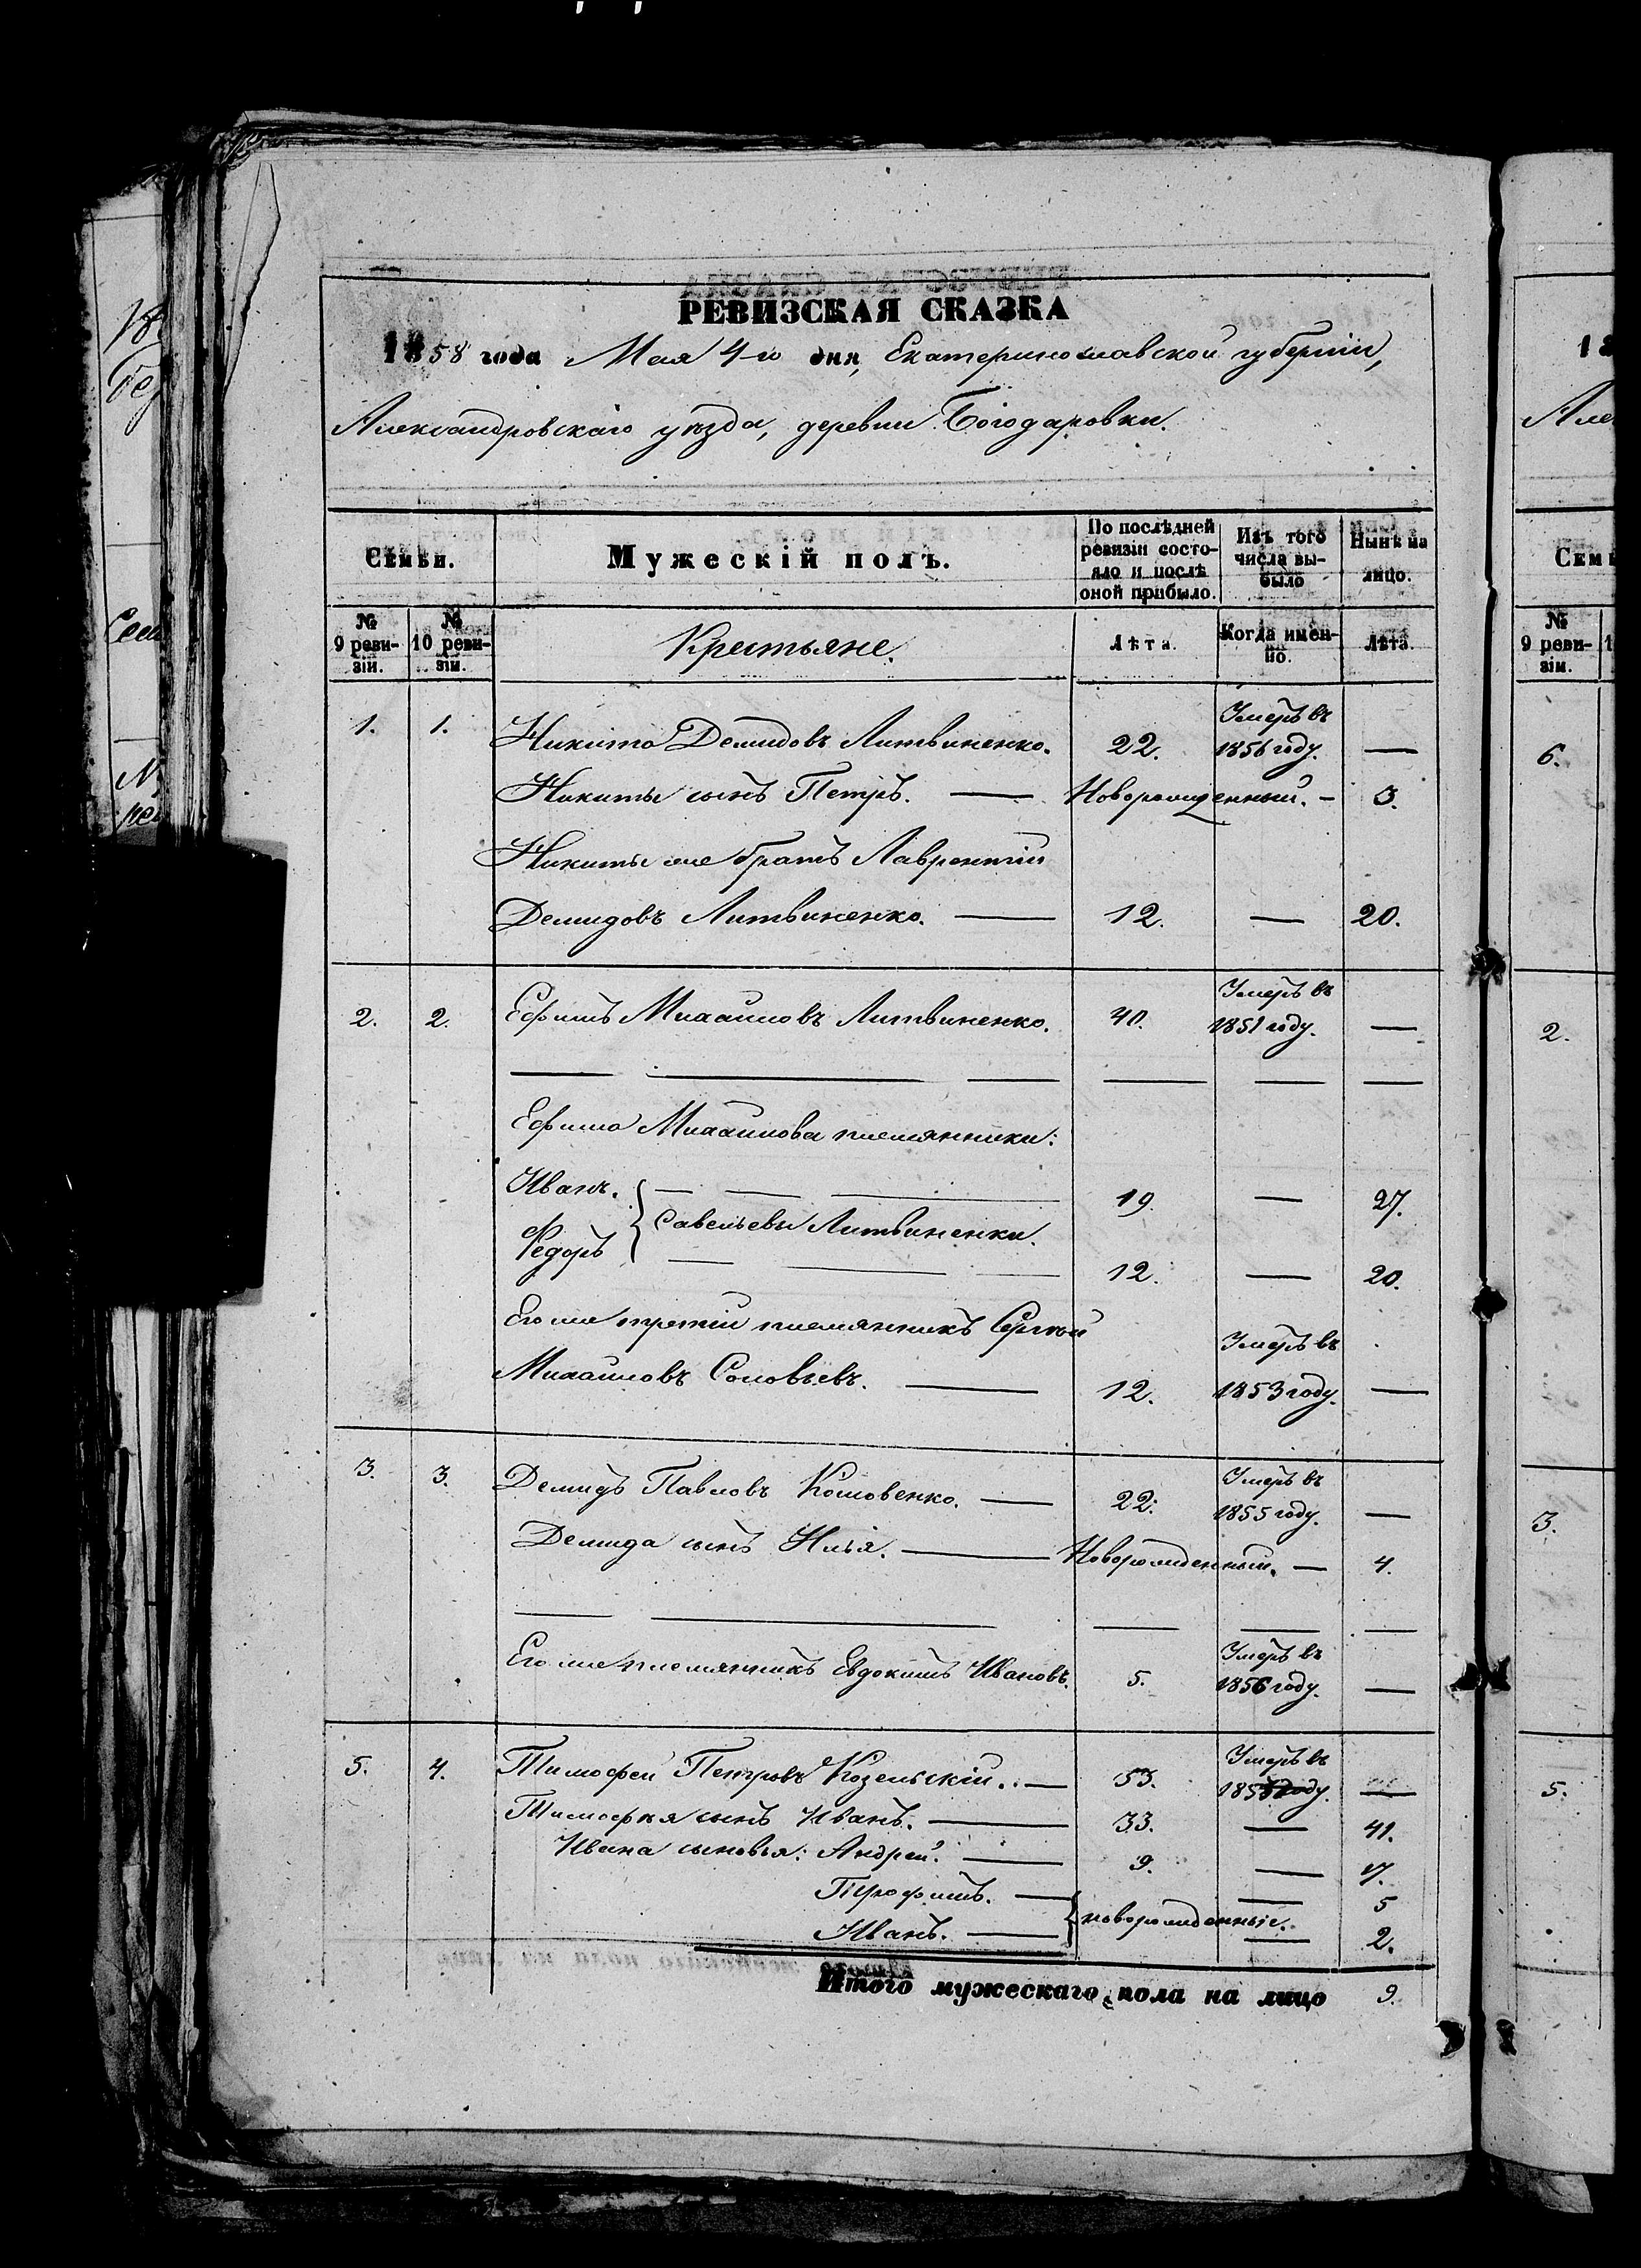 РЕВИЗСКАЯ СКАЗКА
1858 года Мая 4-го дня, Екатеринославской губернiи,
Александровскаго уѣзда, деревни Богодаровки.
Семьи.
Мужескiй полъ.
По послѣдней ревизiи состояло и послѣ оной прибыло.
Изъ того числа выбыло
Нынѣ на лицо.
№ 9 ревизiи.
№ 10 ревизiи.
Крестьяне.
Лѣта.
Когда именно.
Лѣта.
1. 1. Никита Демидовъ Литвиненко. 22. Умеръ въ 1856 году. —
Никиты сынъ Петръ. — Новорожденный. — 3.
Никиты же братъ Лаврентiй
Демидовъ Литвиненко. — 12. — 20.
2. 2. Ефимъ Михайловъ Литвиненко. 40. Умеръ въ 1851 году. —
Ефима Михайлова племянники:
Иванъ. — 19. — 27.
Савельевы Литвиненки.
Федоръ — 12. — 20.
Его же третiй племянникъ Сергѣй
Михайловъ Соловьевъ. — 12. Умеръ въ 1853 году. —
3. 3. Демидъ Павловъ Кошовенко. — 22. Умеръ въ 1855 году. —
Демида сынъ Илья. — Новорожденный. — 4.
Его же племянникъ Евдокимъ Ивановъ. 5. Умеръ въ 1856 году. —
5. 4. Тимофей Петровъ Козельскiй. — 53. Умеръ въ году. —
Тимофея сынъ Иванъ. — 33. — 41.
Ивана сыновья: Андрей. — 9. — 17.
Трофимъ. — 5
новорожденные.
Иванъ. — 2.
Итого мужескаго пола на лицо 9.
1
Але
Семь
№ 9 ревизiи.
6.
2.
3.
5.